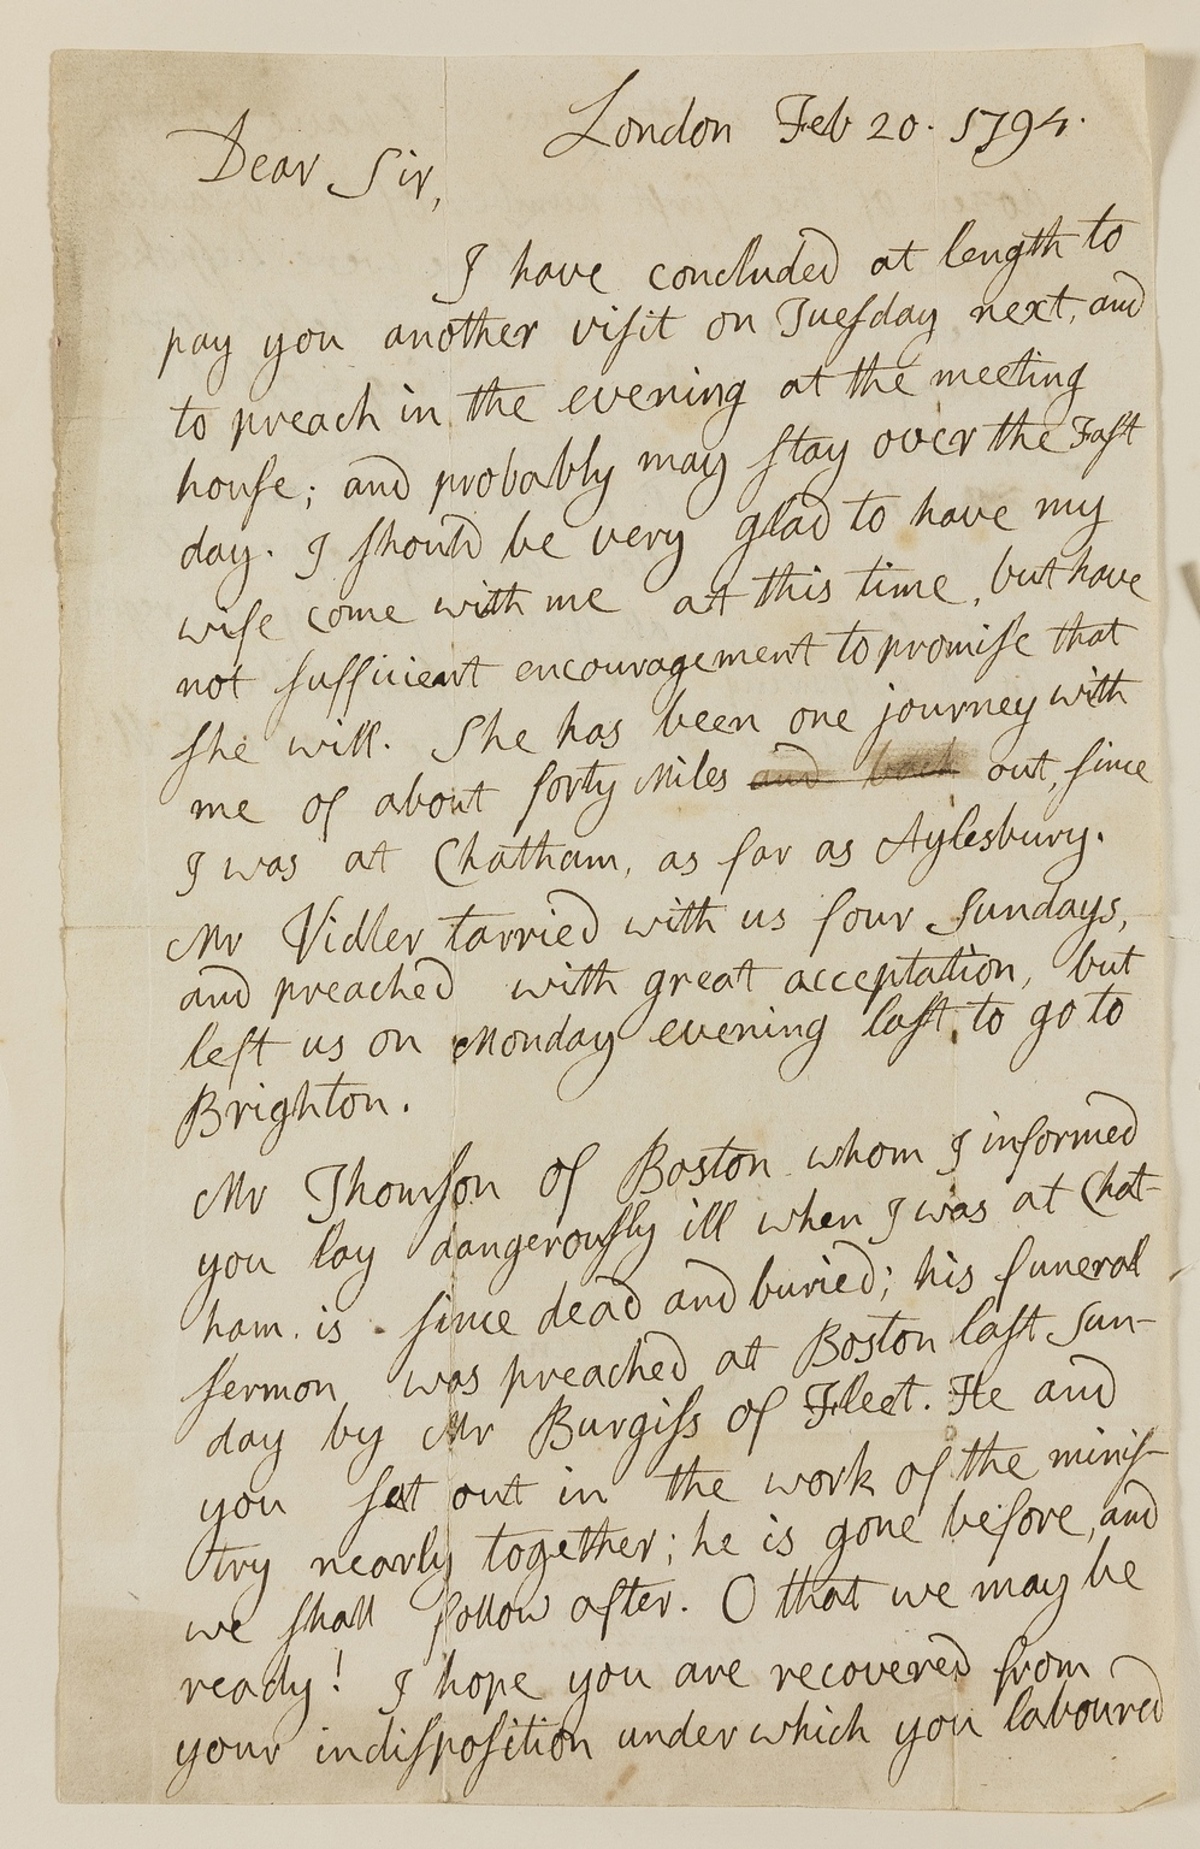 London Feb 20. 1794.
Dear Sir,
I have concluded at length to
pay you another visit on Tuesday next, and
to preach in the evening at the meeting
house; and probably may stay over the Fast
day. I should be very glad to have my
wife come with me at this time, but have
not sufficient encouragement to promise that
she will. She has been one journey with
me of about forty Miles and back out, since
I was at Chatham, as far as Aylesbury.
Mr Vidler tarried with us four Sundays,
and preached with great acceptation, but
left us on Monday evening last, to go to
Brighton.
Mr Thomson of Boston whom I informed
you lay dangerously ill when I was at Chat-
ham. is since dead and buried; his funeral
sermon was preached at Boston last Sun-
day by Mr Burgiss of Fleet. He and
you sat out in the work of the minis-
try nearly together; he is gone before, and
we shall follow after. O that we may be
ready! I hope you are recovered from
your indisposition under which you laboured